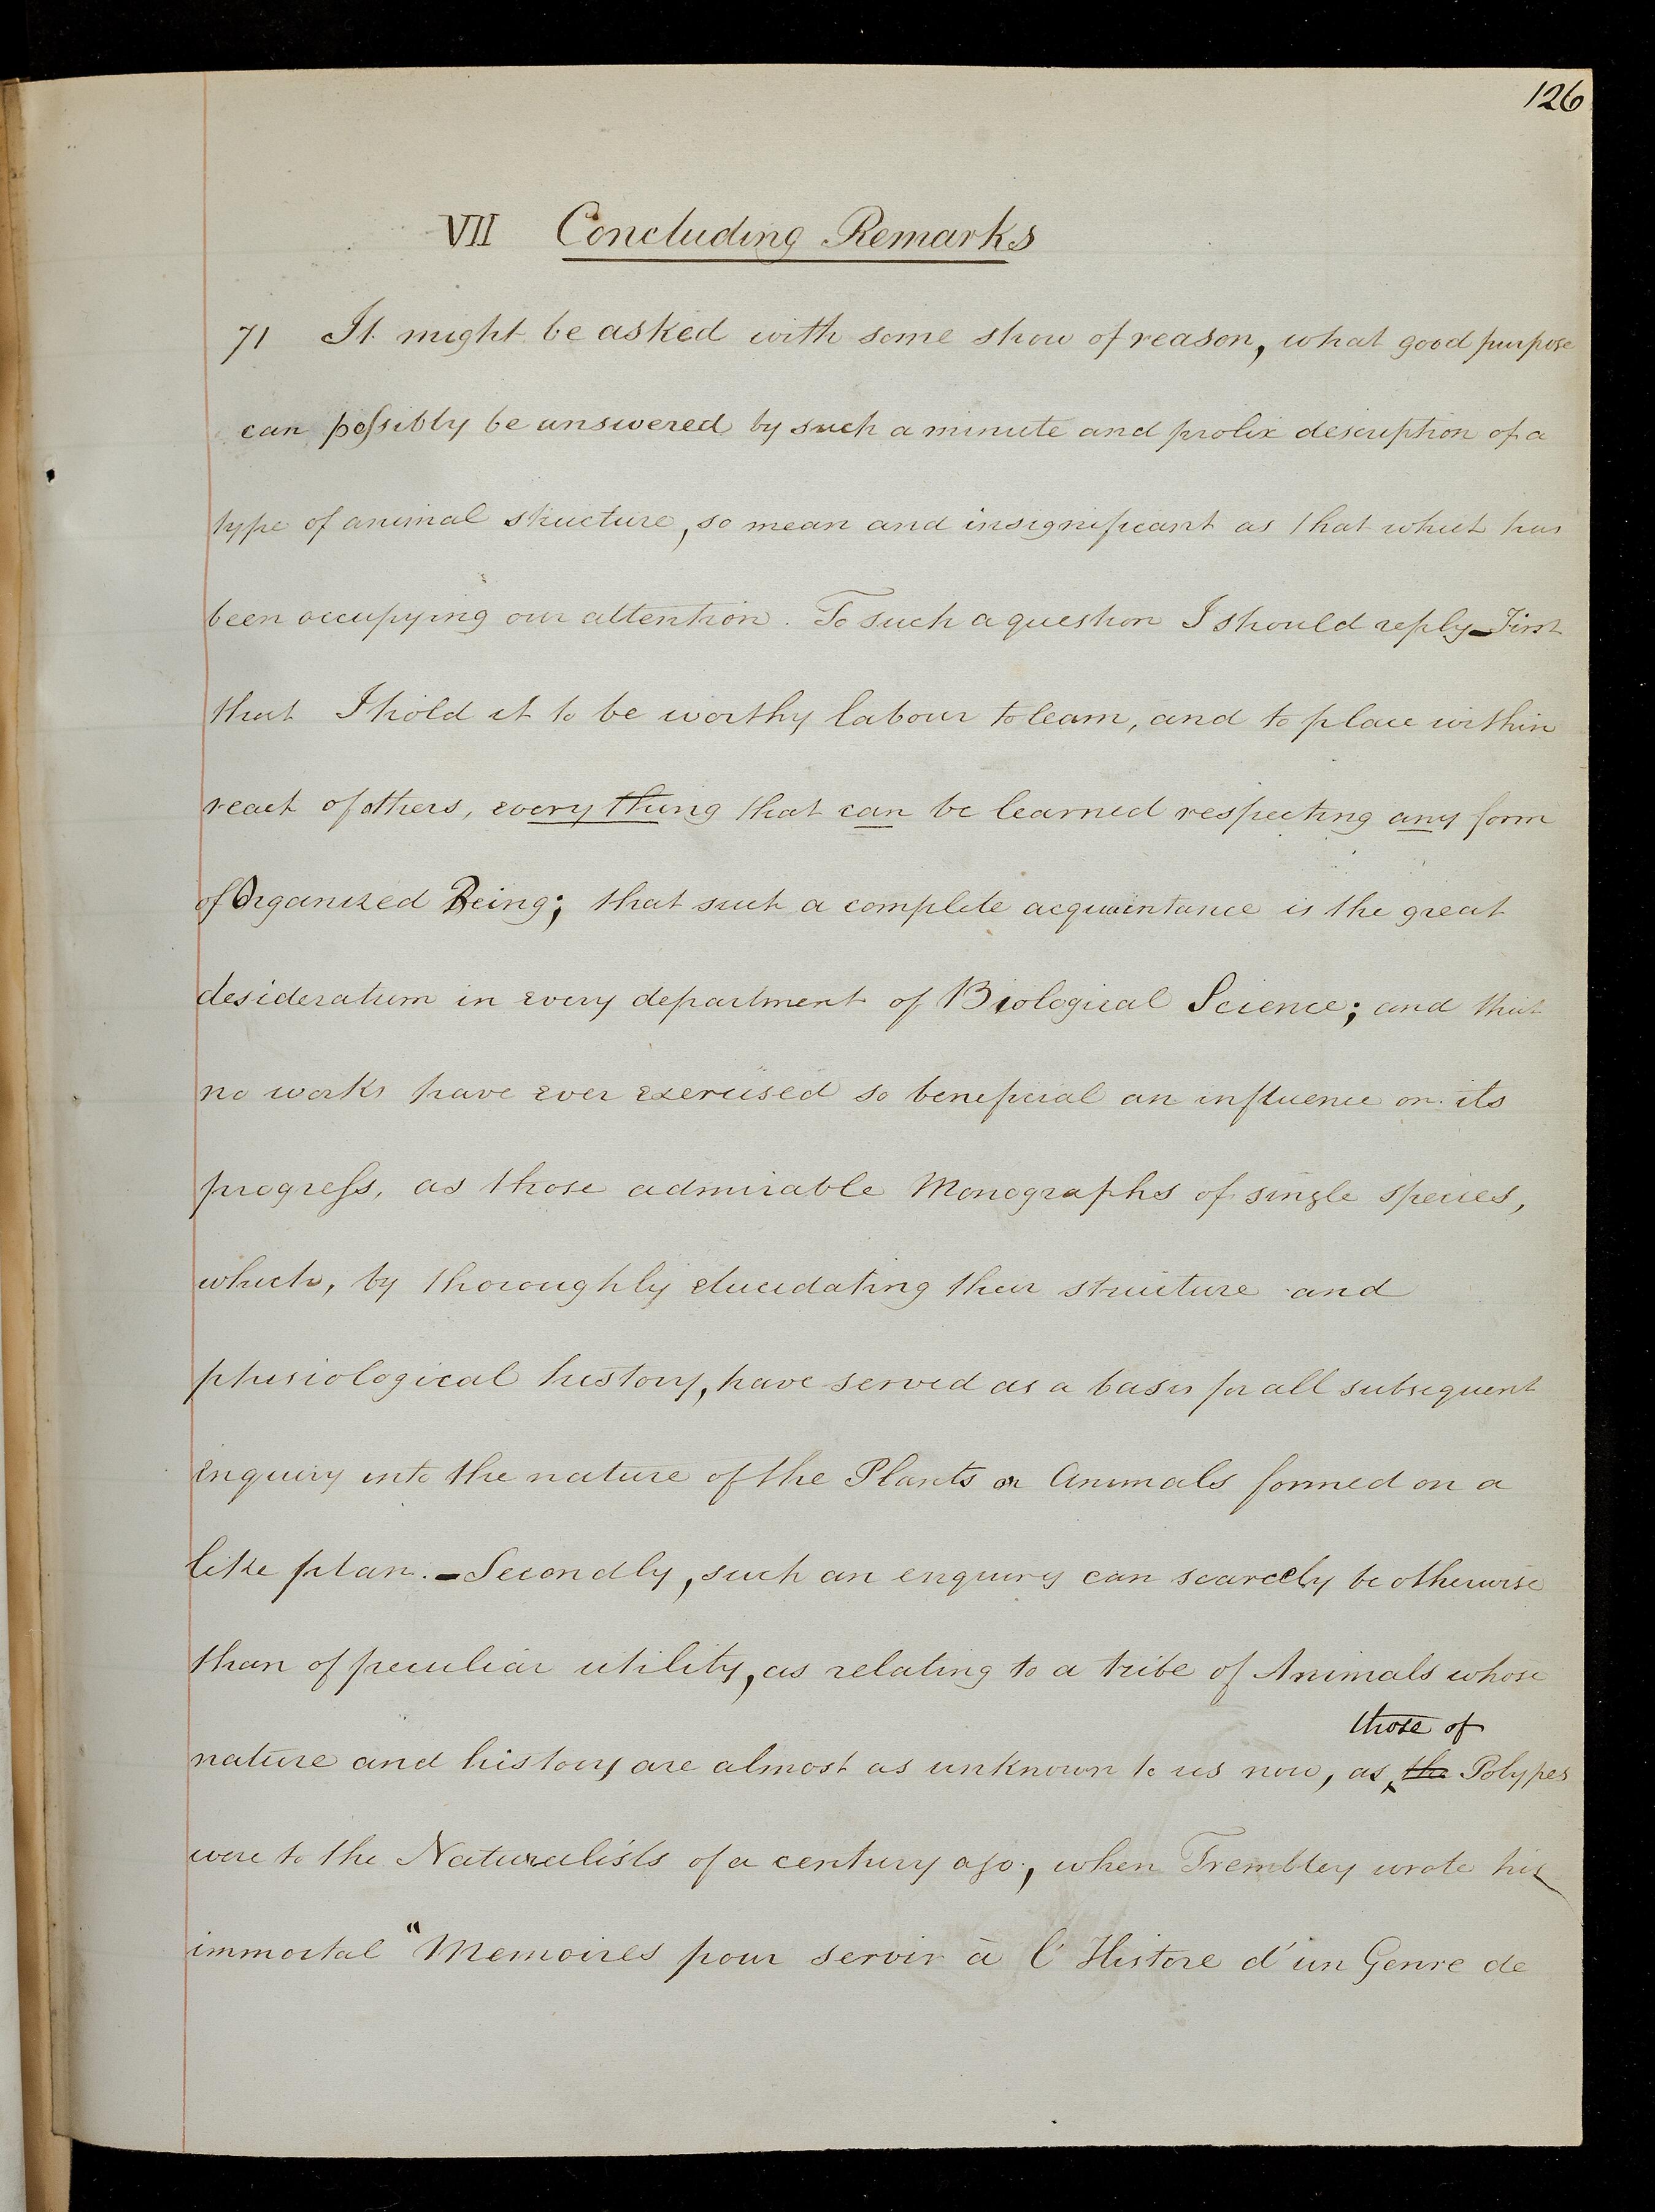 126
VII Concluding Remarks
71 It might be asked with some show of reason, what good purpose
can possibly be answered by such a minute and prolix description of a
type of animal structure, so mean and insignificant as that which has
been occupying our attention. To such a question I should reply_First
that I hold it to be worthy labour to learn, and to place within
reach of others, every thing that can be learned respecting any form
of Organized Being; that such a complete acquaintance is the great
desideratum in every department of Biological Science; and that
no works have ever exercised so beneficial an influence on its
progress, as those admirable Monographs of single species,
which, by thoroughly elucidating their structure and
physiological history, have served as a basis for all subsequent
enquiry into the nature of the Plants or Animals formed on a
like plan._Secondly, such an enquiry can scarcely be otherwise
than of peculiar utility, as relating to a tribe of Animals whose
those of
nature and history are almost as unknown to us now, as the Polypes
were to the Naturalists of a century ago, when Trembley wrote his
immortal "Memoires pour servir à l'Histore d'un Genre de